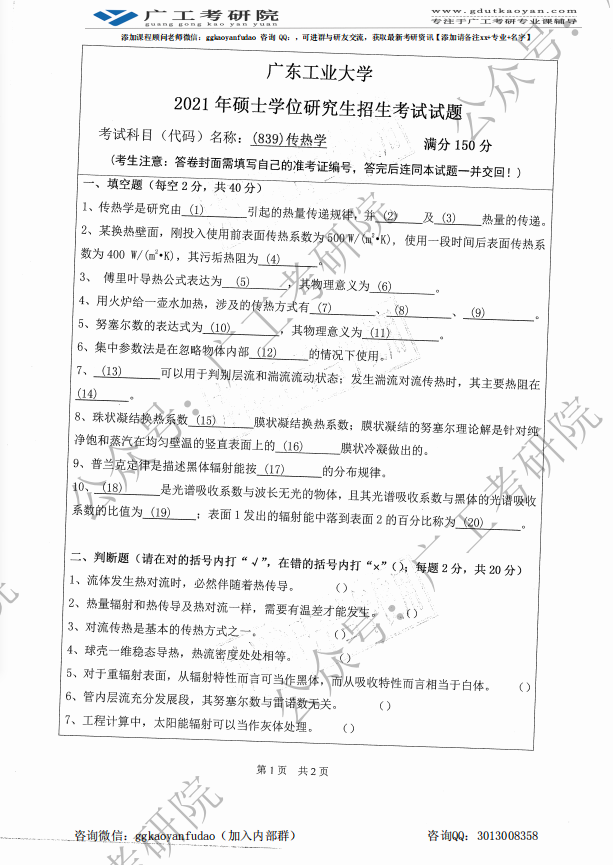 广工考研院
guang gong kao yan yuan
www.gdutkaoyan.com
专注于广工考研专业课辅导
添加课程顾问老师微信：ggkaoyanfudao 咨询 QQ：，可进群与研友交流，获取最新考研资讯【添加请备注xx+专业+名字】
广东工业大学
2021 年硕士学位研究生招生考试试题
考试科目（代码）名称：(839)传热学 满分 150 分
（考生注意：答卷封面需填写自己的准考证编号，答完后连同本试题一并交回！）
一、填空题（每空 2 分，共 40 分）
1、传热学是研究由 (1) 引起的热量传递规律，并 (2) 及 (3) 热量的传递。
2、某换热壁面，刚投入使用前表面传热系数为 500 W/(m²•K)，使用一段时间后表面传热系
数为 400 W/(m²•K)，其污垢热阻为 (4) 。
3、 傅里叶导热公式表达为 (5) ，其物理意义为 (6) 。
4、用火炉给一壶水加热，涉及的传热方式有 (7) 、 (8) 、 (9) 。
5、努塞尔数的表达式为 (10) ，其物理意义为 (11) 。
6、集中参数法是在忽略物体内部 (12) 的情况下使用。
7、 (13) 可以用于判别层流和湍流流动状态；发生湍流对流传热时，其主要热阻在
(14) 。
8、珠状凝结换热系数 (15) 膜状凝结换热系数；膜状凝结的努塞尔理论解是针对纯
净饱和蒸汽在均匀壁温的竖直表面上的 (16) 膜状冷凝做出的。
9、普兰克定律是描述黑体辐射能按 (17) 的分布规律。
10、 (18) 是光谱吸收系数与波长无光的物体，且其光谱吸收系数与黑体的光谱吸收
系数的比值为 (19) ；表面 1 发出的辐射能中落到表面 2 的百分比称为 (20) 。
二、判断题（请在对的括号内打“√”，在错的括号内打“×”（）；每题 2 分，共 20 分）
1、流体发生热对流时，必然伴随着热传导。 （）
2、热量辐射和热传导及热对流一样，需要有温差才能发生。 （）
3、对流传热是基本的传热方式之一。 （）
4、球壳一维稳态导热，热流密度处处相等。 （）
5、对于重辐射表面，从辐射特性而言可当作黑体，而从吸收特性而言相当于白体。 （）
6、管内层流充分发展段，其努塞尔数与雷诺数无关。 （）
7、工程计算中，太阳能辐射可以当作灰体处理。 （）
第 1 页 共 2 页
咨询微信：ggkaoyanfudao（加入内部群） 咨询QQ：3013008358
公众号：广工考研院
公众号：广工考研院